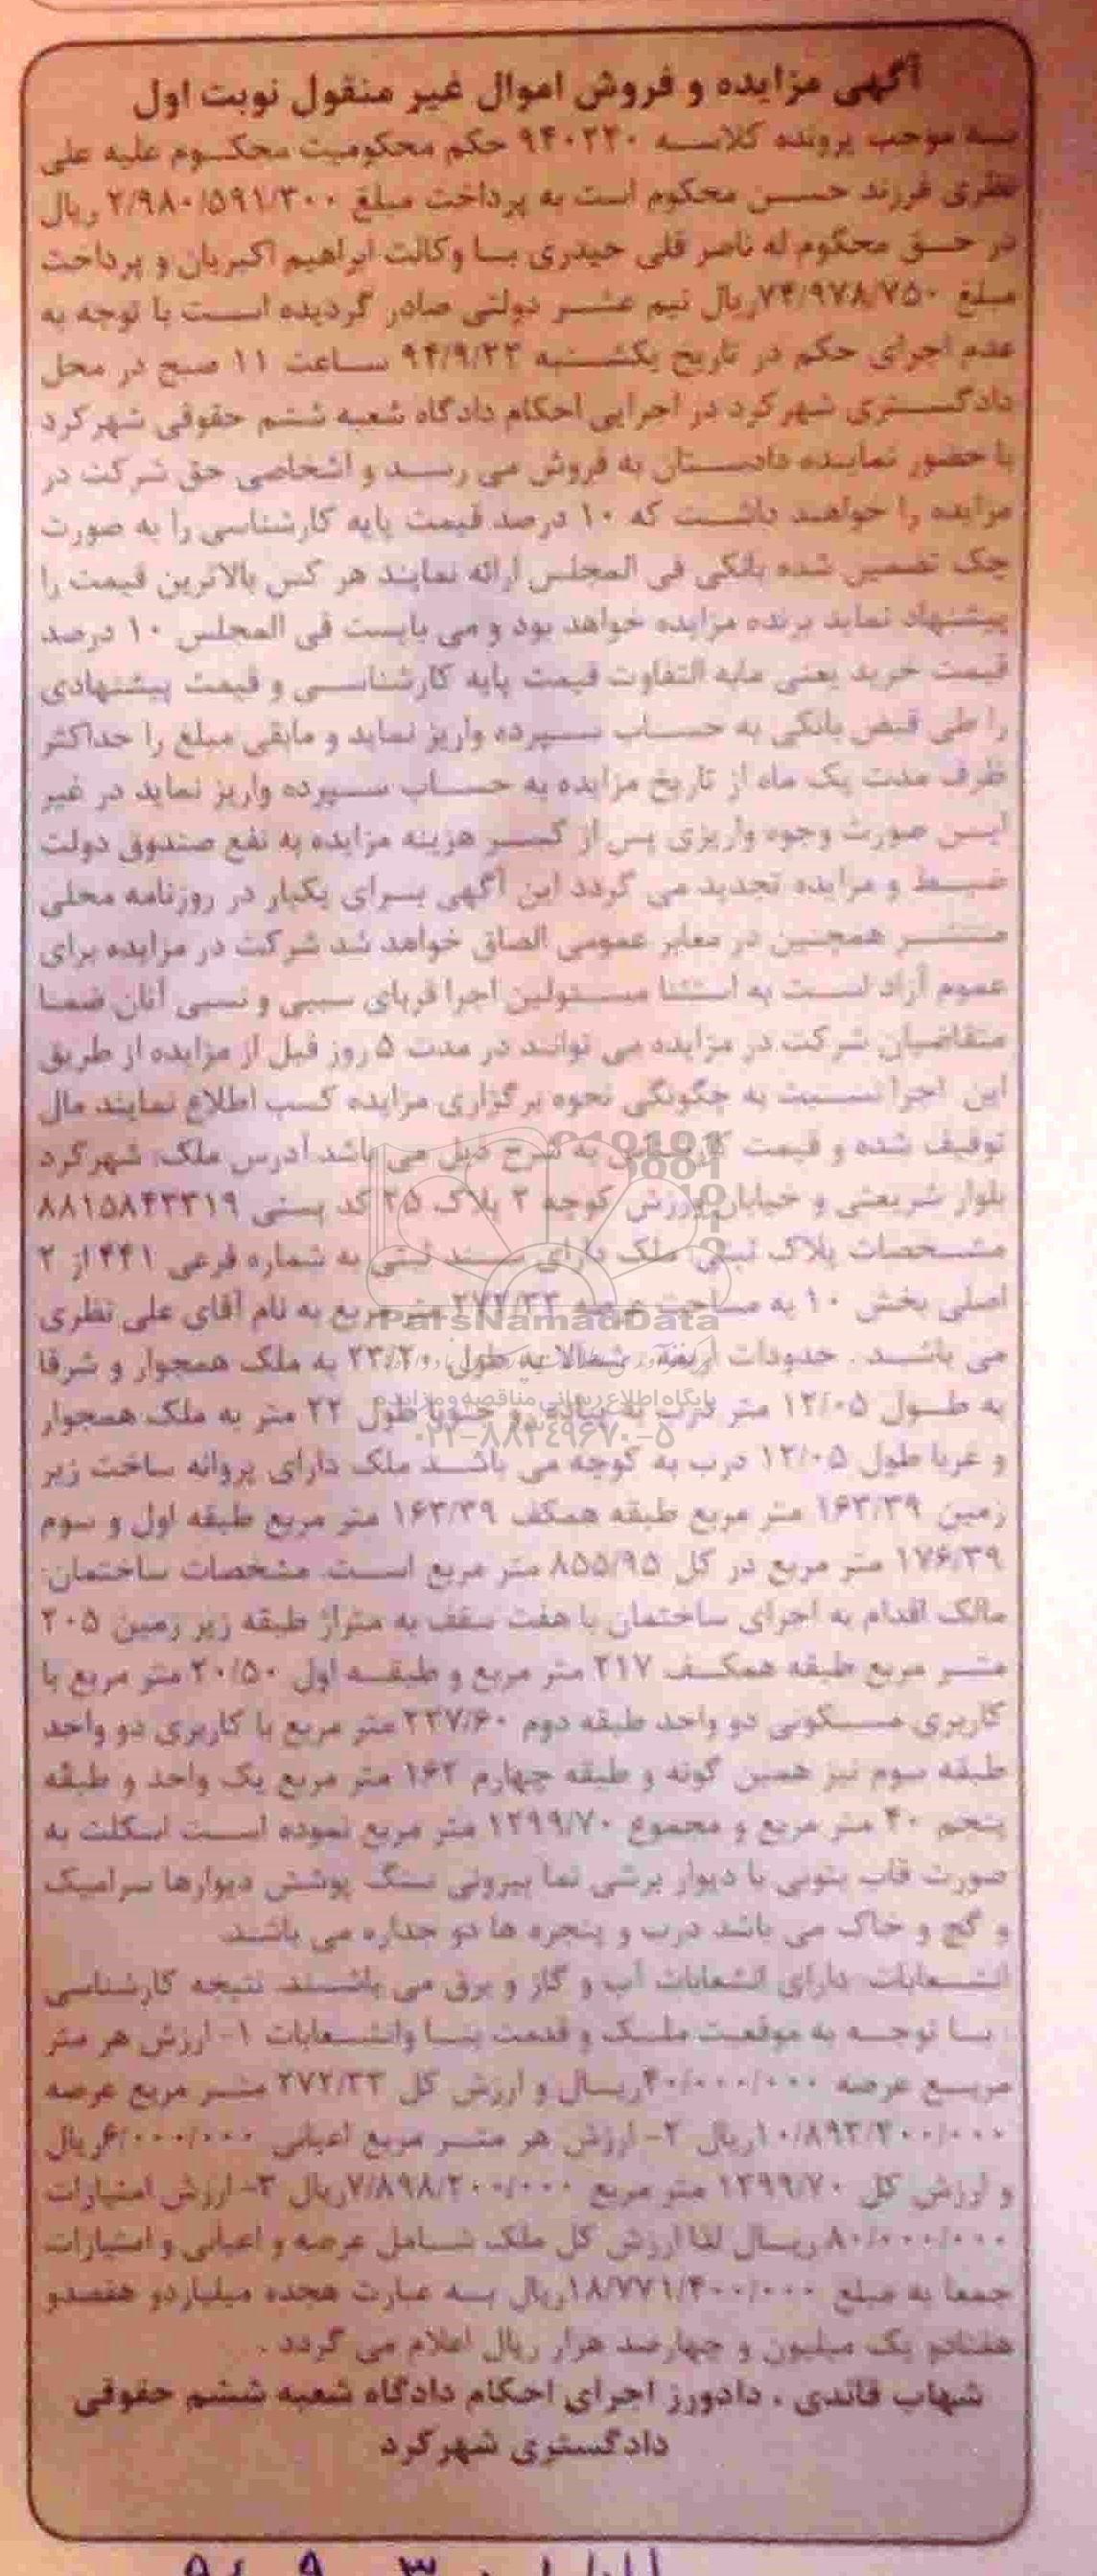 آگهی مزایده و فروش اموال غیر منقول نوبت اول
به موجب پرونده کلاسه ۹۴۰۲۲۰ حکم محکومیت محکوم علیه علی
نظری فرزند حسن محکوم است به پرداخت مبلغ ۲/۹۸۰/۵۹۱/۳۰۰ ریال
در حق محکوم له ناصر قلی حیدری با وکالت ابراهیم اکبریان و پرداخت
مبلغ ۷۴/۹۷۸/۷۵۰ریال نیم عشر دولتی صادر گردیده است با توجه به
عدم اجرای حکم در تاریخ یکشنبه ۹۴/۹/۲۲ ساعت ۱۱ صبح در محل
دادگستری شهرکرد در اجرایی احکام دادگاه شعبه ششم حقوقی شهرکرد
با حضور نماینده دادستان به فروش می رسد و اشخاصی حق شرکت در
مزایده را خواهند داشت که ۱۰ درصد قیمت پایه کارشناسی را به صورت
چک تضمین شده بانکی فی المجلس ارائه نمایند هر کس بالاترین قیمت را
پیشنهاد نماید برنده مزایده خواهد بود و می بایست فی المجلس ۱۰ درصد
قیمت خرید یعنی مابه التفاوت قیمت پایه کارشناسی و قیمت پیشنهادی
را طی قبض بانکی به حساب سپرده واریز نماید و مابقی مبلغ را حداکثر
ظرف مدت یک ماه از تاریخ مزایده به حساب سپرده واریز نماید در غیر
این صورت وجوه واریزی پس از کسر هزینه مزایده به نفع صندوق دولت
ضبط و مزایده تجدید می گردد این آگهی برای یکبار در روزنامه محلی
منتشر همچنین در معابر عمومی الصاق خواهد شد شرکت در مزایده برای
عموم آزاد است به استثنا مسئولین اجرا قربای سببی و نسبی آنان ضمنا
متقاضیان شرکت در مزایده می توانند در مدت ۵ روز قبل از مزایده از طریق
این اجرا نسبت به چگونگی نحوه برگزاری مزایده کسب اطلاع نمایند مال
توقیف شده و قیمت کارشناسی به شرح ذیل می باشد آدرس ملک: شهرکرد
بلوار شریعتی و خیابان ورزش کوچه ۲ پلاک ۲۵ کد پستی ۸۸۱۵۸۴۳۳۱۹
مشخصات پلاک ثبتی: ملک دارای سند ثبتی به شماره فرعی ۴۴۱ از ۲
اصلی بخش ۱۰ به مساحت عرصه ۲۷۲/۳۳ متر مربع به نام آقای علی نظری
می باشد . حدودات اربعه: شمالا به طول ۲۳/۲۰ به ملک همجوار و شرقا
به طول ۱۲/۰۵ متر درب به پیاده رو جنوبا طول ۲۲ متر به ملک همجوار
و غربا طول ۱۲/۰۵ درب به کوچه می باشد ملک دارای پروانه ساخت زیر
زمین ۱۶۳/۳۹ متر مربع طبقه همکف ۱۶۳/۳۹ متر مربع طبقه اول و سوم
۱۷۶/۳۹ متر مربع در کل ۸۵۵/۹۵ متر مربع است. مشخصات ساختمان:
مالک اقدام به اجرای ساختمان با هفت سقف به متراژ طبقه زیر زمین ۲۰۵
متر مربع طبقه همکف ۲۱۷ متر مربع و طبقه اول ۲۰/۵۰ متر مربع با
کاربری مسکونی دو واحد طبقه دوم ۲۲۷/۶۰ متر مربع با کاربری دو واحد
طبقه سوم نیز همین گونه و طبقه چهارم ۱۶۲ متر مربع یک واحد و طبقه
پنجم ۴۰ متر مربع و مجموع ۱۲۹۹/۷۰ متر مربع نموده است اسکلت به
صورت قاب بتونی با دیوار برشی نما بیرونی سنگ پوشش دیوارها سرامیک
و گچ و خاک می باشد درب و پنجره ها دو جداره می باشند.
انشعابات: دارای انشعابات آب و گاز و برق می باشند نتیجه کارشناسی
: با توجه به موقعیت ملک و قدمت بنا وانشعابات ۱- ارزش هر متر
مربع عرصه ۴۰/۰۰۰/۰۰۰ریال و ارزش کل ۲۷۲/۳۳ متر مربع عرصه
۱۰/۸۹۳/۲۰۰/۰۰۰ریال ۲- ارزش هر متر مربع اعیانی ۶/۰۰۰/۰۰۰ریال
و ارزش کل ۱۲۹۹/۷۰ متر مربع ۷/۸۹۸/۲۰۰/۰۰۰ریال ۳- ارزش امتیازات
۸۰/۰۰۰/۰۰۰ ریال لذا ارزش کل ملک شامل عرصه و اعیانی و امتیازات
جمعا به مبلغ ۱۸/۷۷۱/۴۰۰/۰۰۰ریال به عبارت هجده میلیاردو هفتصدو
هفتادو یک میلیون و چهارصد هزار ریال اعلام می گردد .
شهاب قائدی . دادورز اجرای احکام دادگاه شعبه ششم حقوقی
دادگستری شهرکرد
ParsNamadData
پایگاه اطلاع رسانی مناقصه و مزایده
۰۲۱-۸۸۳۴۹۶۷۰-۵